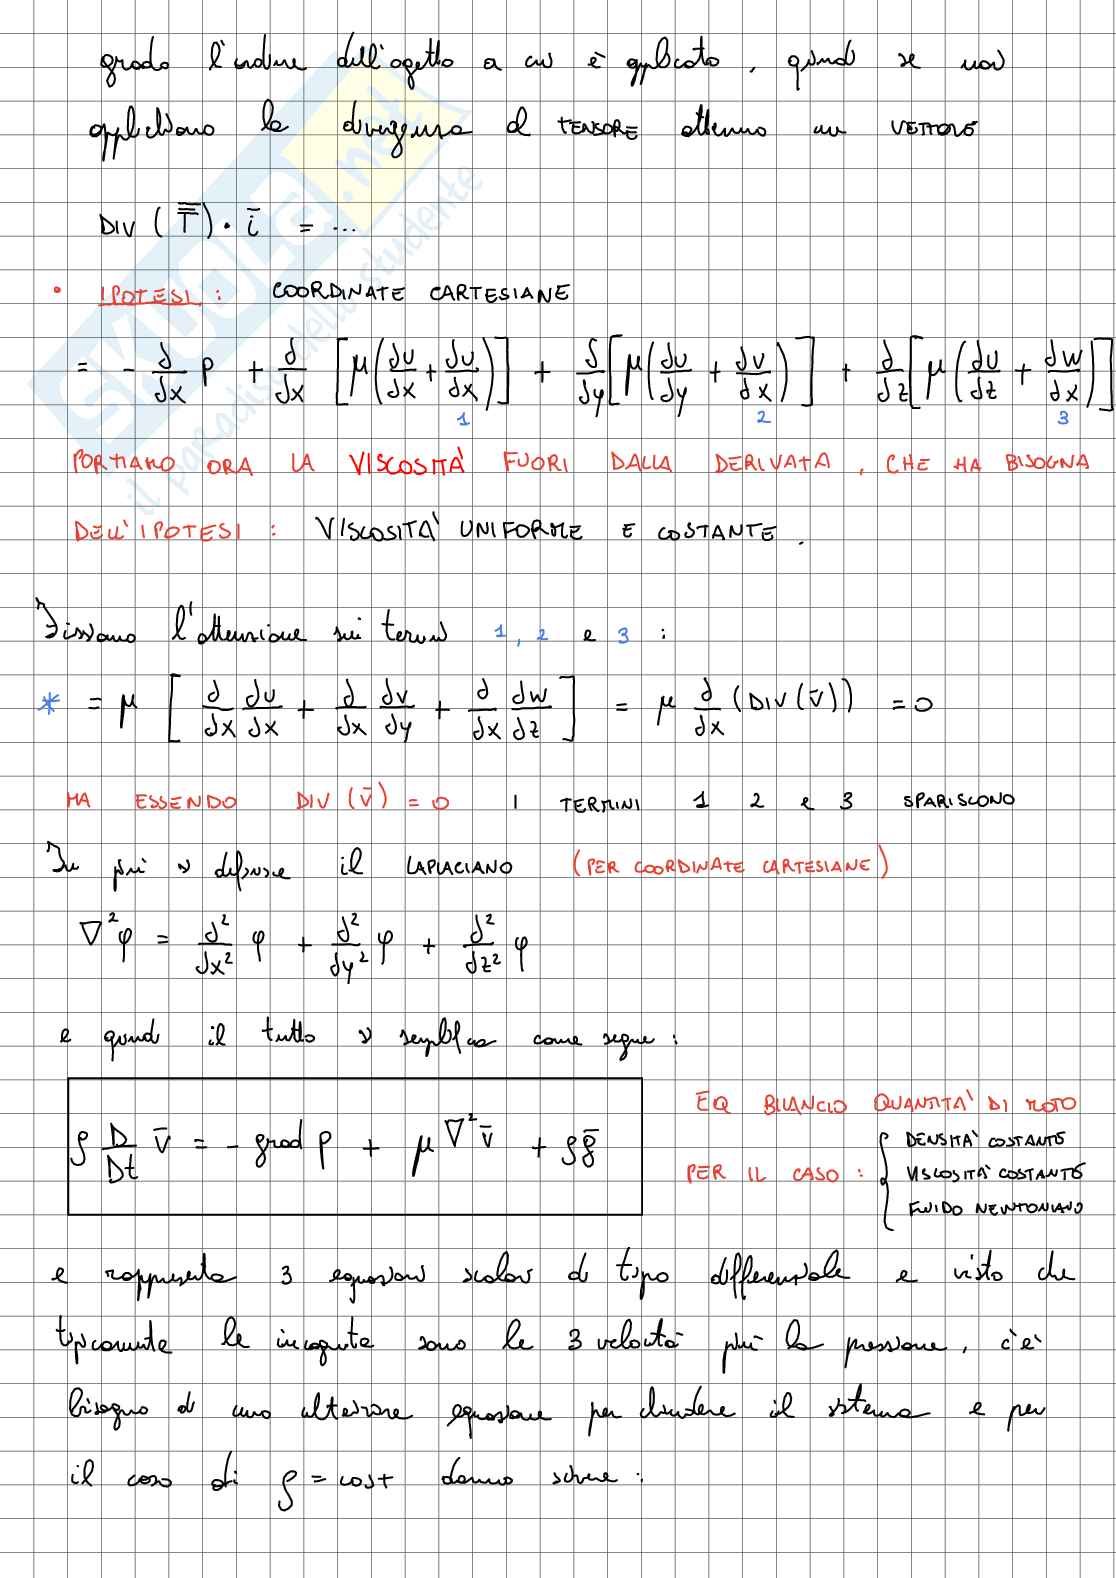 grado l'ordine dell'ogetto a cui è applicato, quindi se noi
applichiamo la divergenza al TENSORE otteniamo un VETTORE
DIV (T̿) · i̅ = ...
• IPOTESI : COORDINATE CARTESIANE
= - d/dx p + d/dx [μ(du/dx + du/dx)] + d/dy [μ(du/dy + dv/dx)] + d/dz [μ(du/dz + dw/dx)]
1 2 3
PORTIAMO ORA LA VISCOSITA' FUORI DALLA DERIVATA, CHE HA BISOGNA
DELL'IPOTESI : VISCOSITA' UNIFORME E COSTANTE.
Fissiamo l'attenzione sui termini 1, 2 e 3 :
* = μ [d/dx du/dx + d/dx dv/dy + d/dx dw/dz] = μ d/dx (DIV(v̅)) = 0
MA ESSENDO DIV (v̅) = 0 I TERMINI 1 2 e 3 SPARISCONO
In più si definisce il LAPLACIANO (PER COORDINATE CARTESIANE)
∇²φ = d²/dx² φ + d²/dy² φ + d²/dz² φ
e quindi il tutto si semplifica come segue :
ρ D/Dt v̅ = - grad p + μ ∇² v̅ + ρg̅
EQ BILANCIO QUANTITA' DI MOTO
PER IL CASO : { DENSITA' COSTANTE
VISCOSITA' COSTANTE
FLUIDO NEWTONIANO
e rappresenta 3 equazioni scalari di tipo differenziale e visto che
tipicamente le incognite sono le 3 velocità più la pressione, c'è
bisogno di una ulteriore equazione per chiudere il sistema e per
il caso di ρ = cost devo scrivere :
SKUOLA.net
il paradiso dello studente